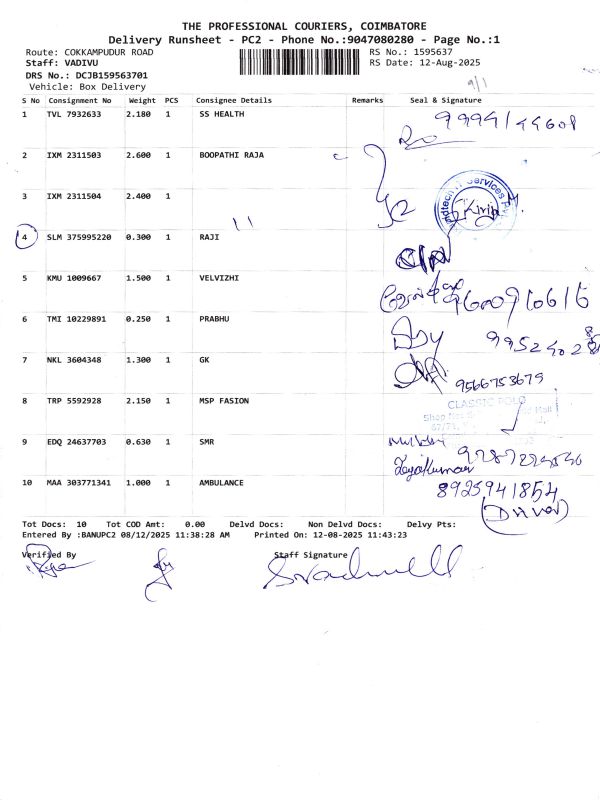 THE PROFESSIONAL COURIERS, COIMBATORE
Delivery Runsheet - PC2 - Phone No.:9047080280 - Page No.:1
Route: COKKAMPUDUR ROAD RS No.: 1595637
Staff: VADIVU RS Date: 12-Aug-2025
DRS No.: DCJB159563701
Vehicle: Box Delivery 9/1
S No Consignment No Weight PCS Consignee Details Remarks Seal & Signature
1 TVL 7932633 2.180 1 SS HEALTH
2 IXM 2311503 2.600 1 BOOPATHI RAJA
3 IXM 2311504 2.400 1
4 SLM 375995220 0.300 1 RAJI
5 KMU 1009667 1.500 1 VELVIZHI
6 TMI 10229891 0.250 1 PRABHU
7 NKL 3604348 1.300 1 GK 9566753679
8 TRP 5592928 2.150 1 MSP FASION
CLASSIC POLO
9 EDQ 24637703 0.630 1 SMR
10 MAA 303771341 1.000 1 AMBULANCE 8925941854
(Driver)
Tot Docs: 10 Tot COD Amt: 0.00 Delvd Docs: Non Delvd Docs: Delvy Pts:
Entered By :BANUPC2 08/12/2025 11:38:28 AM Printed On: 12-08-2025 11:43:23
Verified By Staff Signature